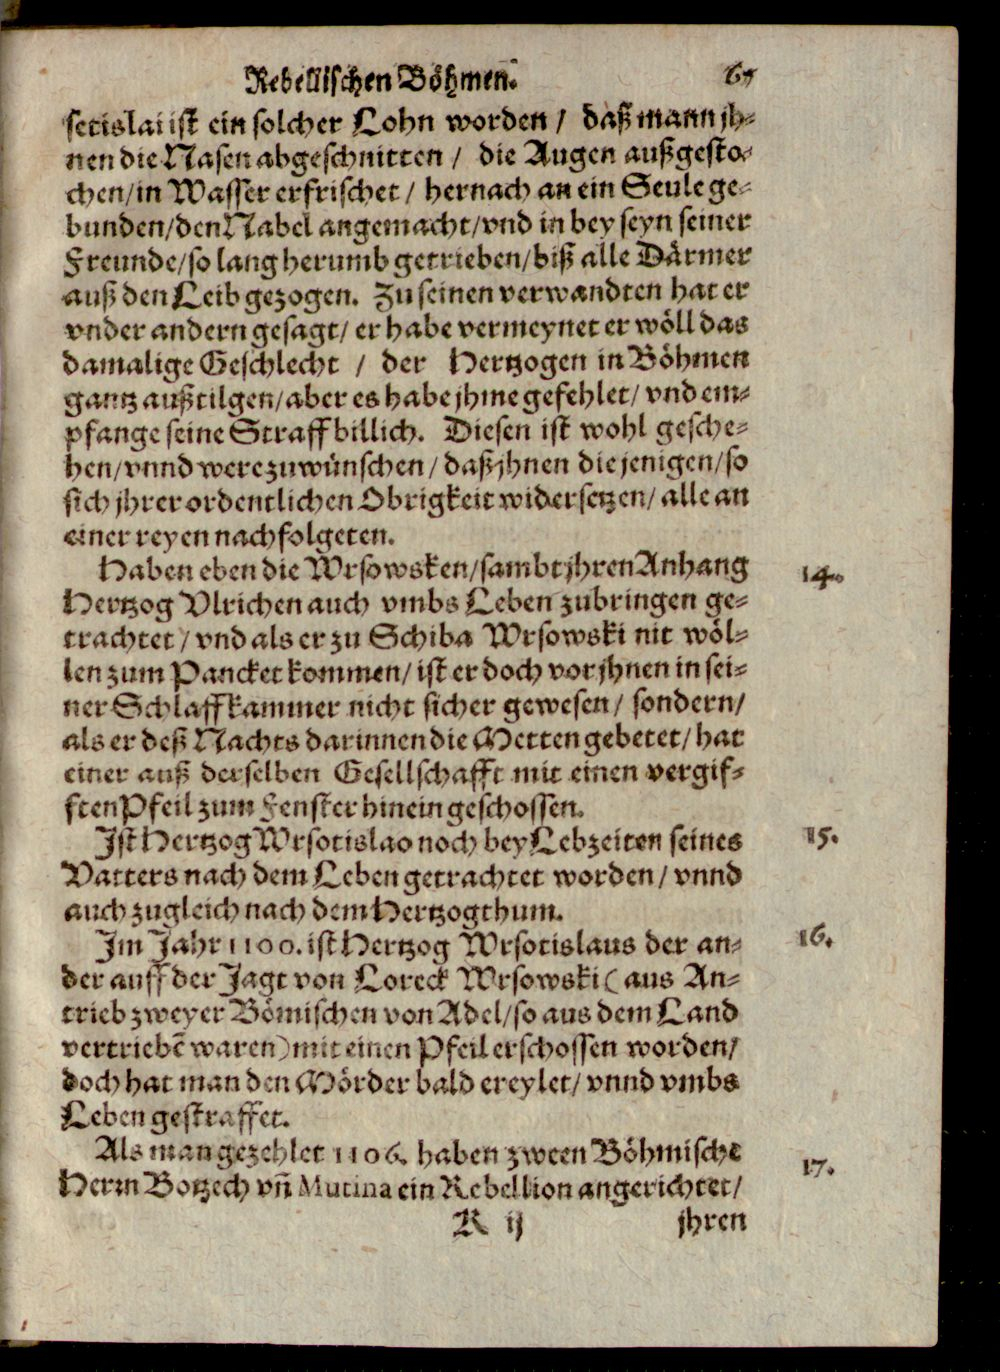 Rebellischen Böhmen.
setislai ist ein solcher Lohn worden / daß mann jh⸗
nen die Nasen abgeschnitten / die Augen außgesto⸗
chen / in Wasser erfrischet / hernach an ein Seule ge⸗
bunden / den Nabel angemacht / vnd in bey seyn seiner
Freunde / so lang herumb getrieben / biß alle Därmer
auß den Leib gezogen. Zu seinen verwandten hat er
vnder andern gesagt / er habe vermeynet er wöll das
damalige Geschlecht / der Hertzogen in Böhmen
gantz außtilgen / aber es habe jhme gefehlet / vnd em⸗
pfange seine Straff billich. Diesen ist wohl gesche⸗
hen / vnnd were zu wünschen / daß jhnen die jenigen / so
sich jhrer ordentlichen Obrigkeit widersetzen / alle an
einer reyen nachfolgeten.
Haben eben die Wrsowsken / sambt jhren Anhang 14.
Hertzog Vlrichen auch vmbs Leben zubringen ge⸗
trachtet / vnd als er zu Schiba Wrsowski nit wöl⸗
len zum Pancket kommen / ist er doch vor jhnen in sei⸗
ner Schlaffkammer nicht sicher gewesen / sondern /
als er deß Nachts darinnen die Metten gebetet / hat
einer auß derselben Gesellschafft mit einen vergif⸗
ften Pfeil zum Fenster hinein geschossen.
Ist Hertzog Wrsotislao noch bey Lebzeiten seines 15.
Vatters nach dem Leben getrachtet worden / vnnd
auch zugleich nach dem Hertzogthum.
Im Jahr 1100. ist Hertzog Wrsotislaus der an⸗ 16.
der auff der Jagt von Loreck Wrsowski ( aus An⸗
trieb zweyer Bömischen von Adel / so aus dem Land
vertriebē waren ) mit einen Pfeil erschossen worden /
doch hat man den Mörder bald ereylet / vnnd vmbs
Leben gestraffet.
Als man gezehlet 1106. haben zween Böhmische 17.
Herrn Botzech vñ Mutina ein Rebellion angerichtet /
K ij jhren